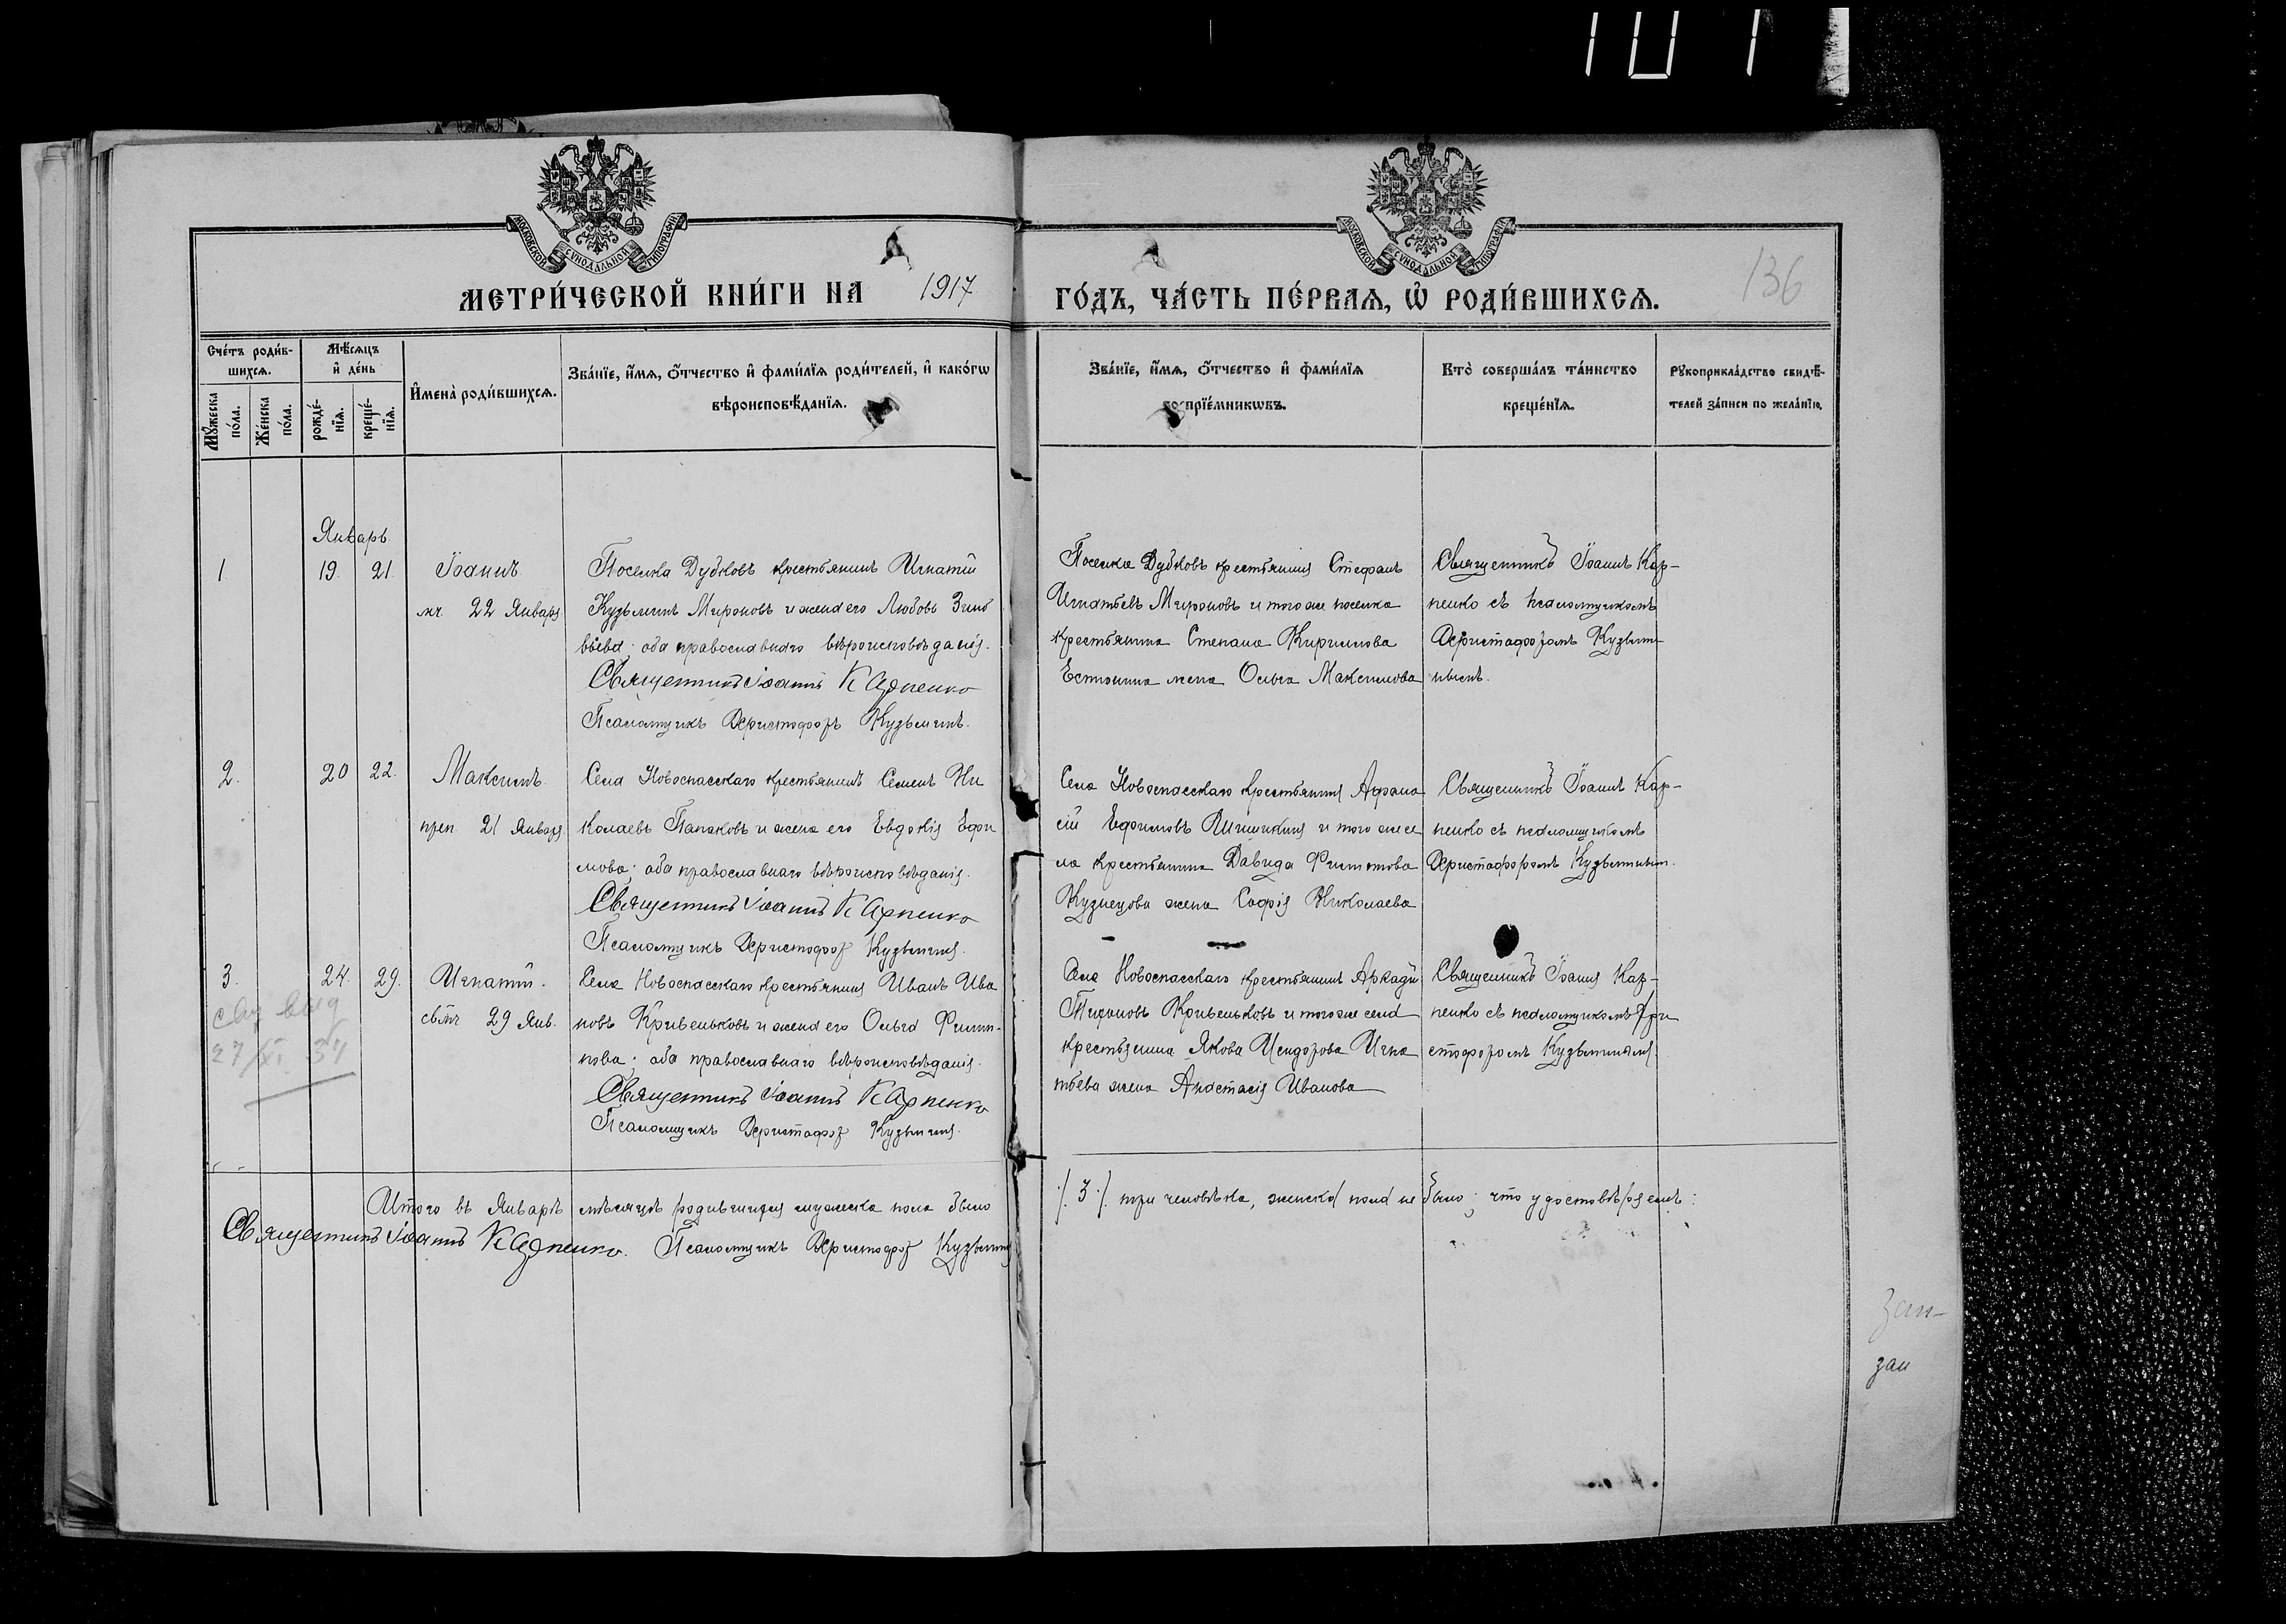 1017
МОСКОВСКОЙ СѴНОДАЛЬНОЙ ТИПОГРАФІИ
МОСКОВСКОЙ СѴНОДАЛЬНОЙ ТИПОГРАФІИ
МЕТРИ́ЧЕСКОЙ КНИ́ГИ НА 1917 ГО́ДЪ, ЧА́СТЬ ПЕ́РВАѦ, Ѿ РОДИ́ВШИХСѦ.
136
Сче́тъ роди́в-
шихсѧ.
Мѣ́сѧцъ
и҆ де́нь
Мꙋ́жеска
по́ла.
Же́нска
по́ла.
рожде́-
нїѧ.
креще́-
нїѧ.
И҆мена̀ роди́вшихсѧ.
Зва́нїе, и҆́мѧ, ѻ҆́тчество и҆ фами́лїѧ роди́телей, и҆ како́гѡ
вѣроисповѣ́данїѧ.
Зва́нїе, и҆́мѧ, ѻ҆́тчество и҆ фами́лїѧ
воспрїе́мникѡвъ.
Кто̀ соверша́лъ та́инство
креще́нїѧ.
Рꙋкоприкла́дство свидѣ́-
телей за́писи по жела́нїю.
Январь
1 19. 21. Іоаннъ
мч. 22 Января
Поселка Дубковъ крестьянинъ Игнатій
Кузьминъ Мироновъ и жена его Любовь Зино
вьева; оба православнаго вѣроисповѣданія.
Священникъ Іоаннъ Карпенко
Псаломщикъ Христофоръ Кузьминъ.
Поселка Дубковъ крестьянинъ Стефанъ
Игнатьевъ Мироновъ и того же поселка
крестьянина Степана Кириллова
жена Ольга Максимова
Священникъ Іоаннъ Кар-
пенко съ псаломщикомъ
Христофоромъ Кузьми-
нымъ.
2. 20 22. Максимъ
преп. 21 Января
Села Новоспасскаго крестьянинъ Семенъ Ни
колаевъ Папаковъ и жена его Евдокія Ефи
мова; оба православнаго вѣроисповѣданія.
Священникъ Іоаннъ Карпенко
Псаломщикъ Христофоръ Кузьминъ.
Села Новоспасскаго крестьянинъ Афана
сій Ефимовъ Шишкинъ и того же се
ла крестьянина Давида Филиппова
Кузнецова жена Софія Николаева
Священникъ Іоаннъ Кар-
пенко съ псаломщикомъ
Христофоромъ Кузьминым.
3. 24. 29. Игнатій.
св. мч 29 Янв.
Села Новоспасскаго крестьянинъ Иванъ Ива
новъ Кривеньковъ и жена его Ольга Филип-
пова; оба православнаго вѣроисповѣданія.
Священникъ Іоаннъ Карпенко
Псаломщикъ Христофоръ Кузьминъ.
Села Новоспасскаго крестьянинъ Аркадій
Тихоновъ Кривеньковъ и того же села
крестьянина Якова Исидорова Игна
тьева жена Анастасія Иванова
Священникъ Іоаннъ Кар-
пенко съ псаломщикомъ Хри
стофоромъ Кузьминымъ.
27/XI 37
Итого въ Январѣ мѣсяцѣ родившихся мужеска пола было /.3./ три человѣка, женска пола не было; что удостовѣряемъ:
Священникъ Іоаннъ Карпенко. Псаломщикъ Христофоръ Кузьминъ
зап